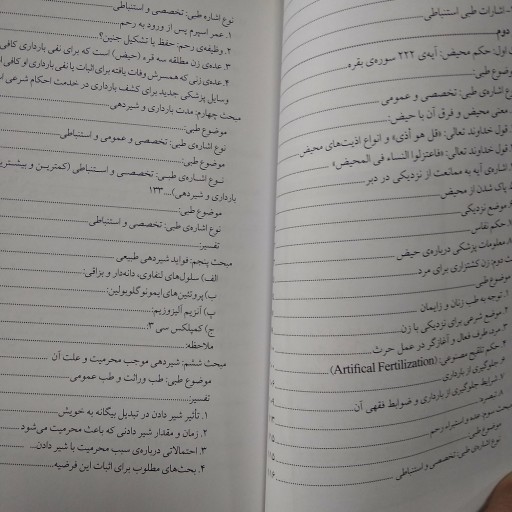 اشارات طبی استنباطی
دوم
اول: حکم محیض: آیه‌ی ۲۲۲ سوره‌ی بقره
موضوع طبی:
نوع اشاره‌ی طبی: تخصصی و عمومی
معنی محیض و فرق آن با حیض:
قول خداوند تعالی: «قل هو أذی» و انواع اذیت‌های محیض
قول خداوند تعالی: «فاعتزلوا النساء فی المحیض»
اشاره‌ی آیه به ممانعت از نزدیکی در دبر
پاک شدن از محیض
موضع نزدیکی
حکم نفاس
معلومات پزشکی درباره‌ی حیض
دوم: زن کشتزاری برای مرد
موضوع طبی
۱. توجه به طب زنان و زایمان
۲. موضع شرعی برای نزدیکی با زن
۳. مرد طرف فعال و آغازگر در عمل حرث
۴. حکم تلقیح مصنوعی: (Artifical Fertilization)
جلوگیری از بارداری
شرایط جلوگیری از بارداری و ضوابط فقهی آن
تبصره
مبحث سوم: عده و استبراء رحم
موضوع طبی:
نوع اشاره‌ی طبی: تخصصی و استنباطی ۱۱۶
نوع اشاره طبی: تخصصی و استنباطی
۱. عمر اسپرم پس از ورود به رحم
۲. وظیفه‌ی رحم: حفظ یا تشکیل جنین؟
۳. عده‌ی زن مطلقه سه قرء (حیض) است که برای نفی بارداری کافی
۴. عده‌ی زنی که همسرش وفات یافته برای اثبات یا نفی بارداری او کافی
وسایل پزشکی جدید برای کشف بارداری در خدمت احکام شرعی
مبحث چهارم: مدت بارداری و شیردهی
موضوع طبی:
نوع اشاره‌ی طبی: تخصصی و عمومی و استنباطی
موضوع طبی:
نوع اشاره‌ی طبی: تخصصی و استنباطی (کمترین و بیشترین
بارداری و شیردهی)....۱۳۳
موضوع طبی:
نوع اشاره‌ی طبی: تخصصی و استنباطی
تفسیر:
مبحث پنجم: فواید شیردهی طبیعی
الف) سلول‌های لنفاوی، دانه‌دار و بزاقی:
ب) پروتئین‌های ایمونوگلوبولین:
پ) آنزیم لیزوزیم:
ج) کمپلکس سی ۳:
ملاحظه:
مبحث ششم: شیردهی موجب محرمیت و علت آن
موضوع طبی: طب وراثت و طب عمومی
تفسیر:
۱. تأثیر شیر دادن در تبدیل بیگانه به خویش
۲. زمان و مقدار شیر دادنی که باعث محرمیت می‌شود
۳. احتمالاتی درباره‌ی سبب محرمیت با شیر دادن
۴. بحث‌های مطلوب برای اثبات این فرضیه